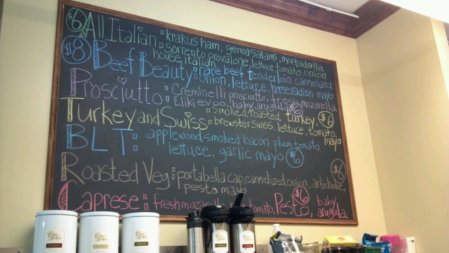 $6 All Italian: krakus ham, genoa salami, mortadella
sorrento provalone, lettuce tomato, onion
house italian
$8 Beef Beauty: rare beef tenderloin caramelized
onion, lettuce, horseradish mayo
Prosciutto: Cremine prosciutto, fresh mozzarella
baby arugula
Turkey and Swiss: smoked roasted turkey $6
brewster swiss lettuce, tomato
mayo
BLT: applewood smoked bacon plum tomato
lettuce, garlic mayo $6
Roasted Veg: portabella cap, carmelized onion, artichoke
pesto mayo
Caprese: fresh mozzarella tomato, Pesto, baby
arugula